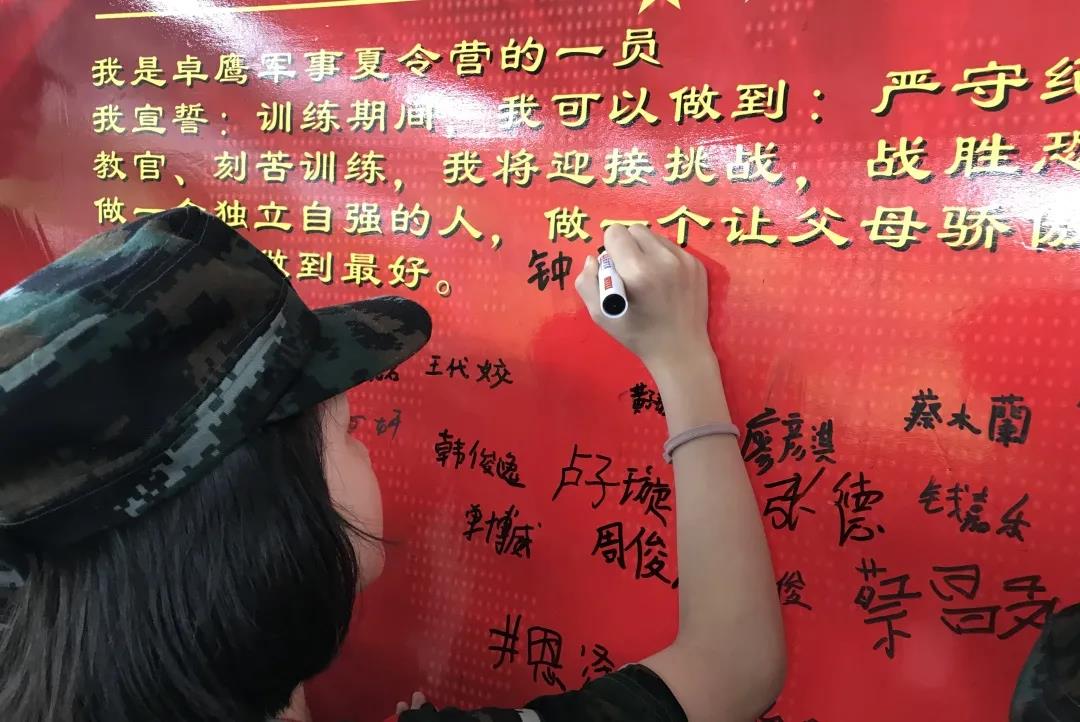 我是卓鹰军事夏令营的一员
我宣誓：训练期间，我可以做到：严守纪
教官、刻苦训练，我将迎接挑战，战胜恐
做一个独立自强的人，做一个让父母骄傲
做到最好。
钟
王代姣
蔡木蘭
廖彦淇
韩俊逸
卢子璇
张德
钱嘉乐
覃博威
周俊
俊
恩泽